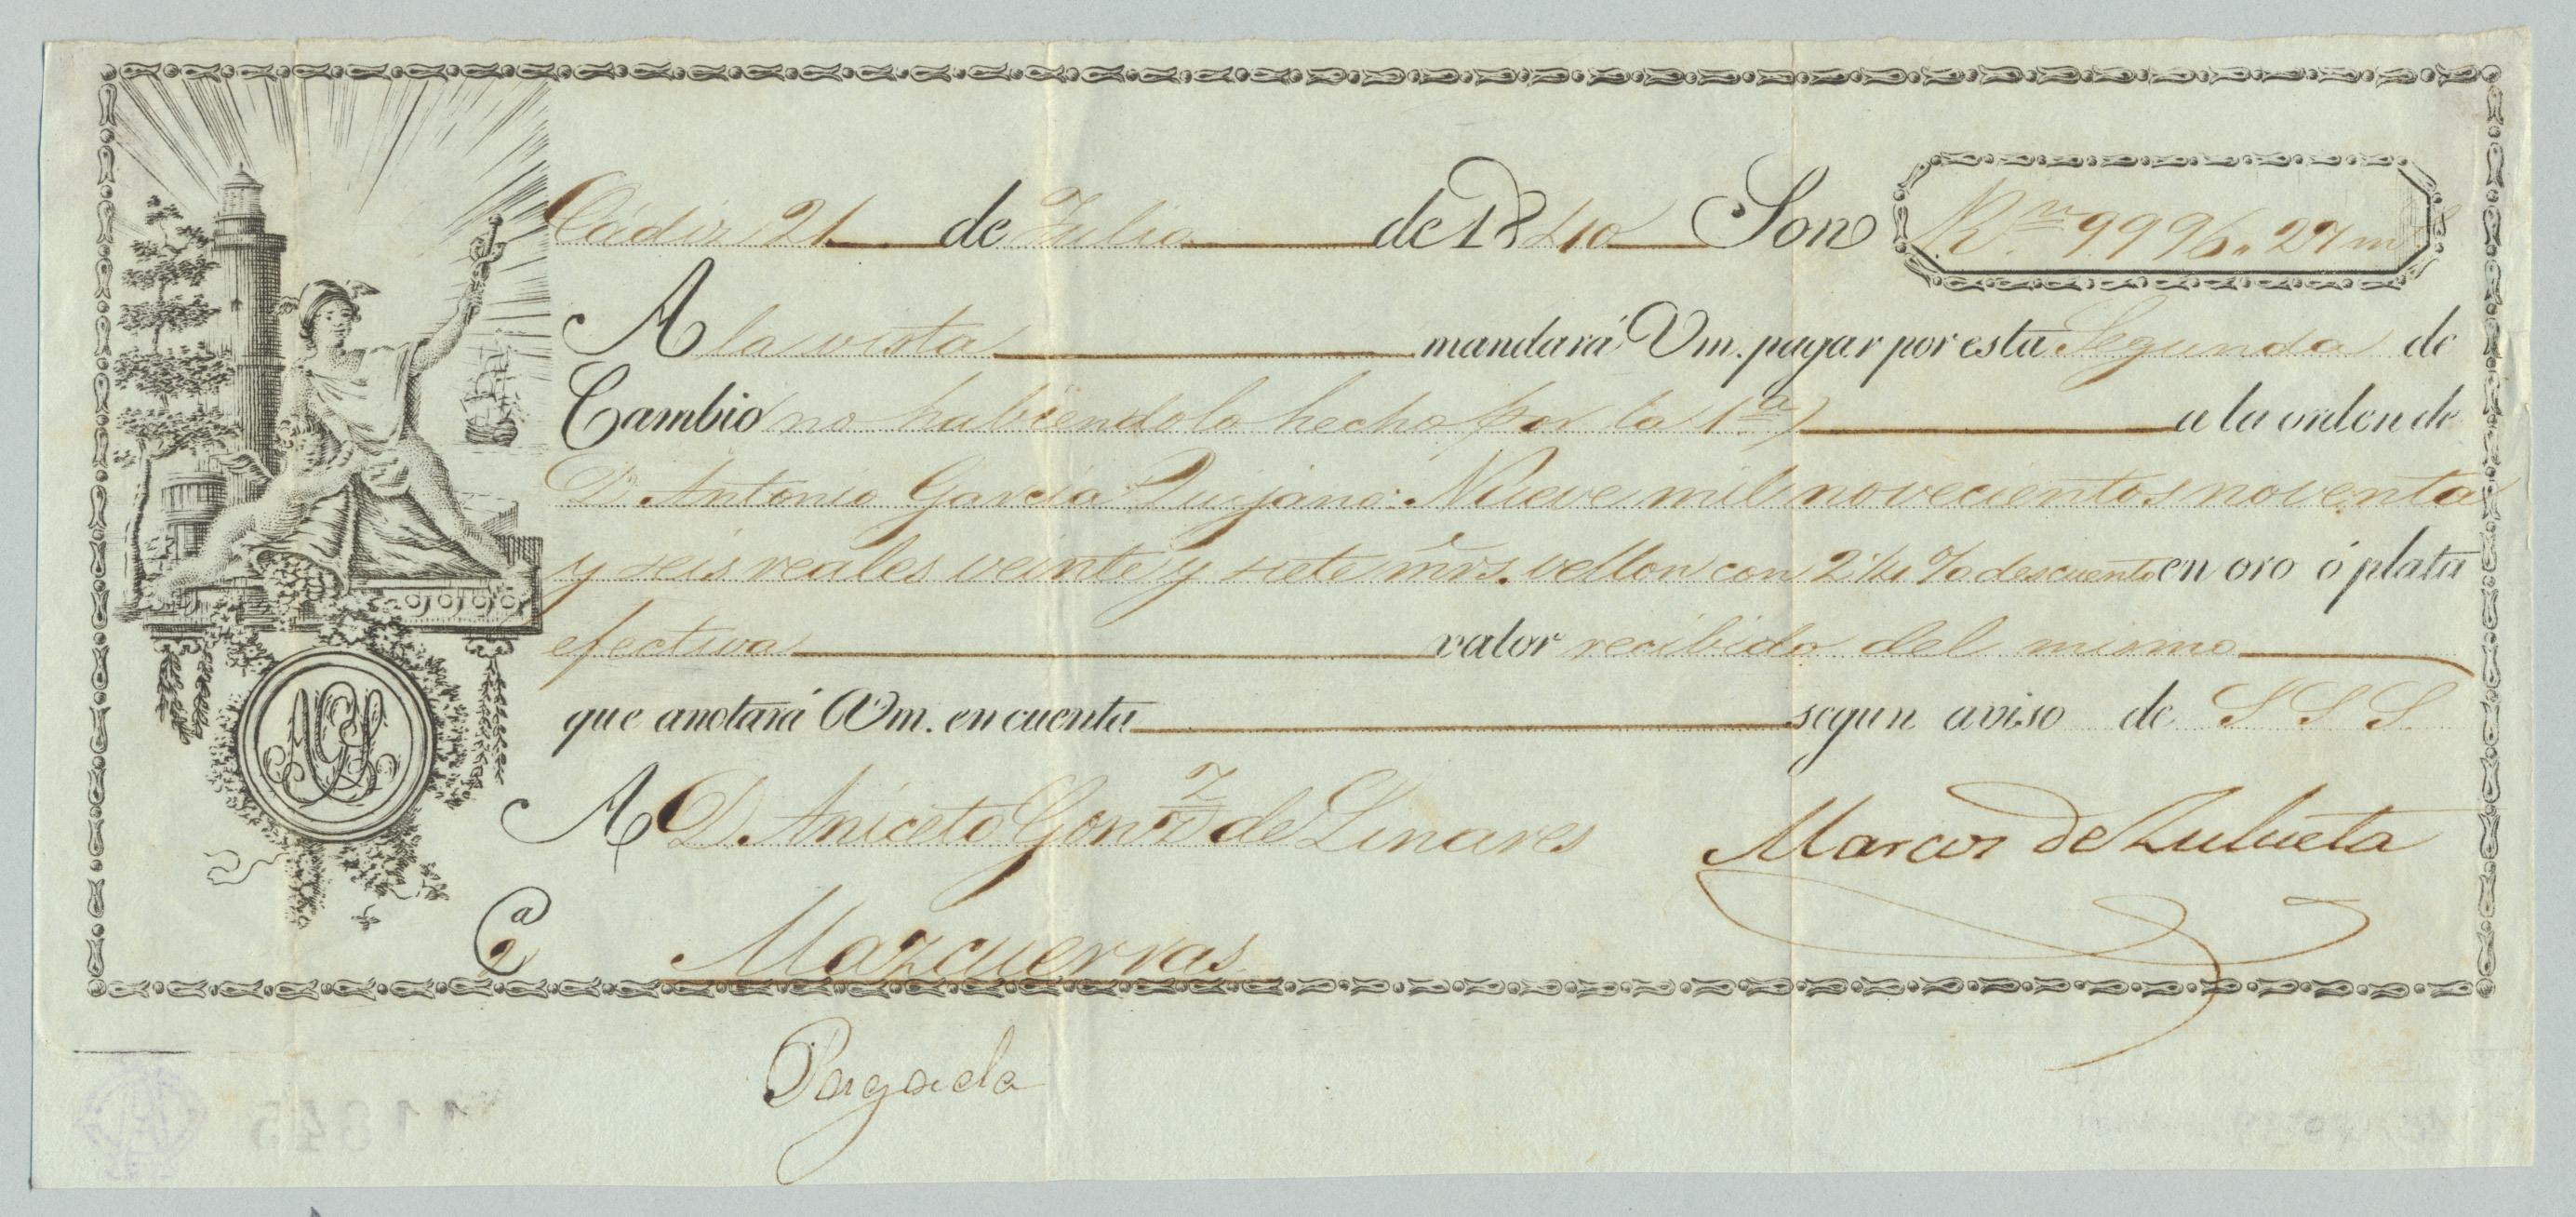 Cádiz 21 de Julio de 1840 Son R.ˢ vⁿ 9996,, 27 mˢ
A la vista mandará Vm. pagar por esta Segunda de
Cambio no habiendolo hecho por la 1ª) a la orden de
Dⁿ Antonio Garcia Quijano: Nueve mil novecientos noventa
y seis reales veinte y siete mrs. vellon con 2 1/4 % descuento en oro ó plata
efectiva valor recibido del mismo
que anotará Vm. en cuenta segun aviso de S S S.
A D. Aniceto Gonᶻ de Linares Marcos de Zulueta
2ª Mazcuerras
Pagada
11845